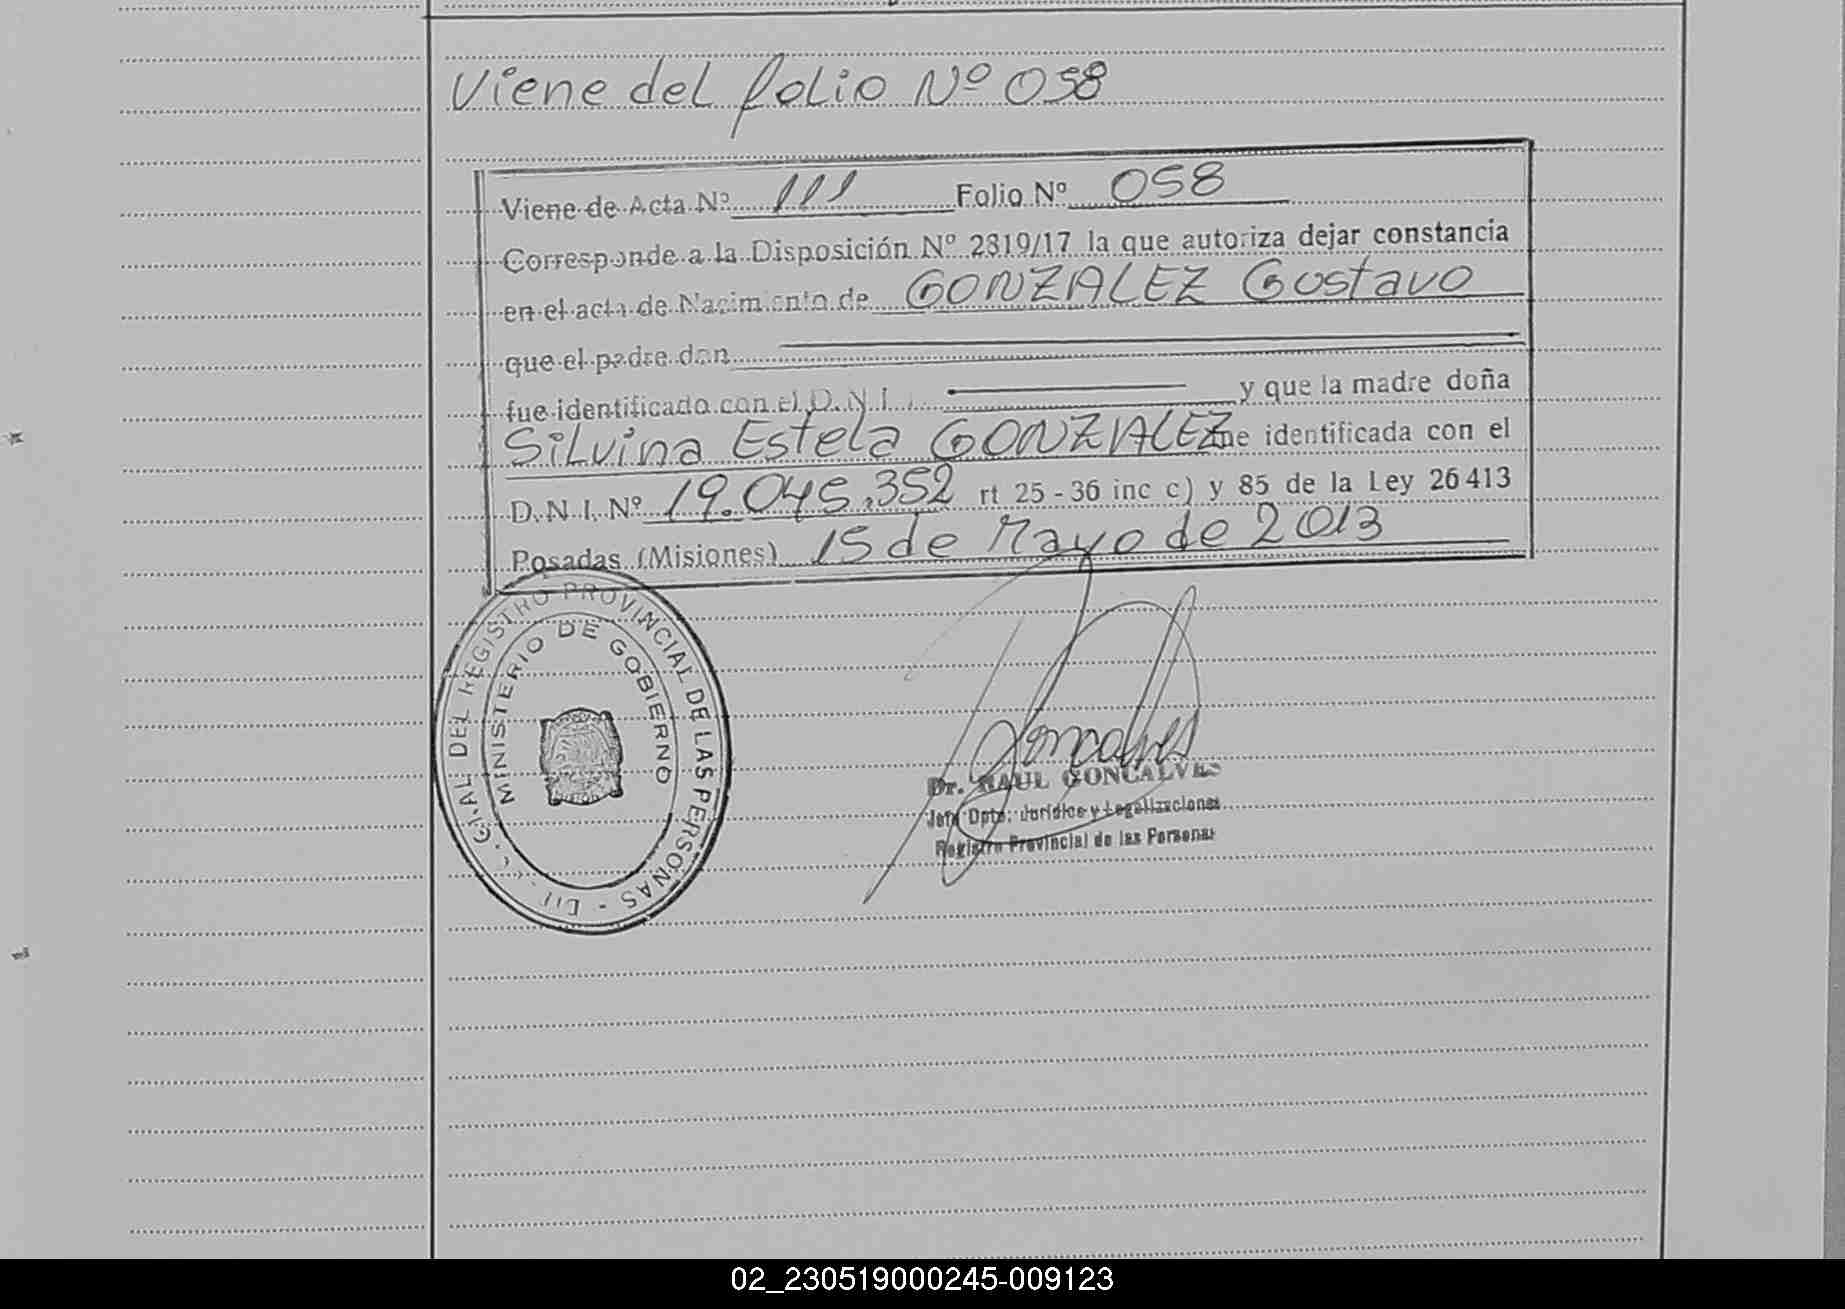 Viene del folio Nº 058
Viene de Acta Nº 111 Folio Nº 058
Corresponde a la Disposición Nº 2819/17 la que autoriza dejar constancia
en el acta de Nacimiento de GONZALEZ Gustavo
que el padre don
fue identificado con el D.N.I.
y que la madre doña
Silvina Estela GONZALEZ fue identificada con el
D.N.I. Nº 19.045.352 rt 25-36 inc c) y 85 de la Ley 26413
Posadas (Misiones) 15 de Mayo de 2013
DEL REGISTRO PROVINCIAL DE LAS PERSONAS
MINISTERIO DE GOBIERNO
Goncalves
Dr. RAUL GONCALVES
Jefe Dpto. Jurídico y Legalizaciones
Registro Provincial de las Personas
02_230519000245-009123